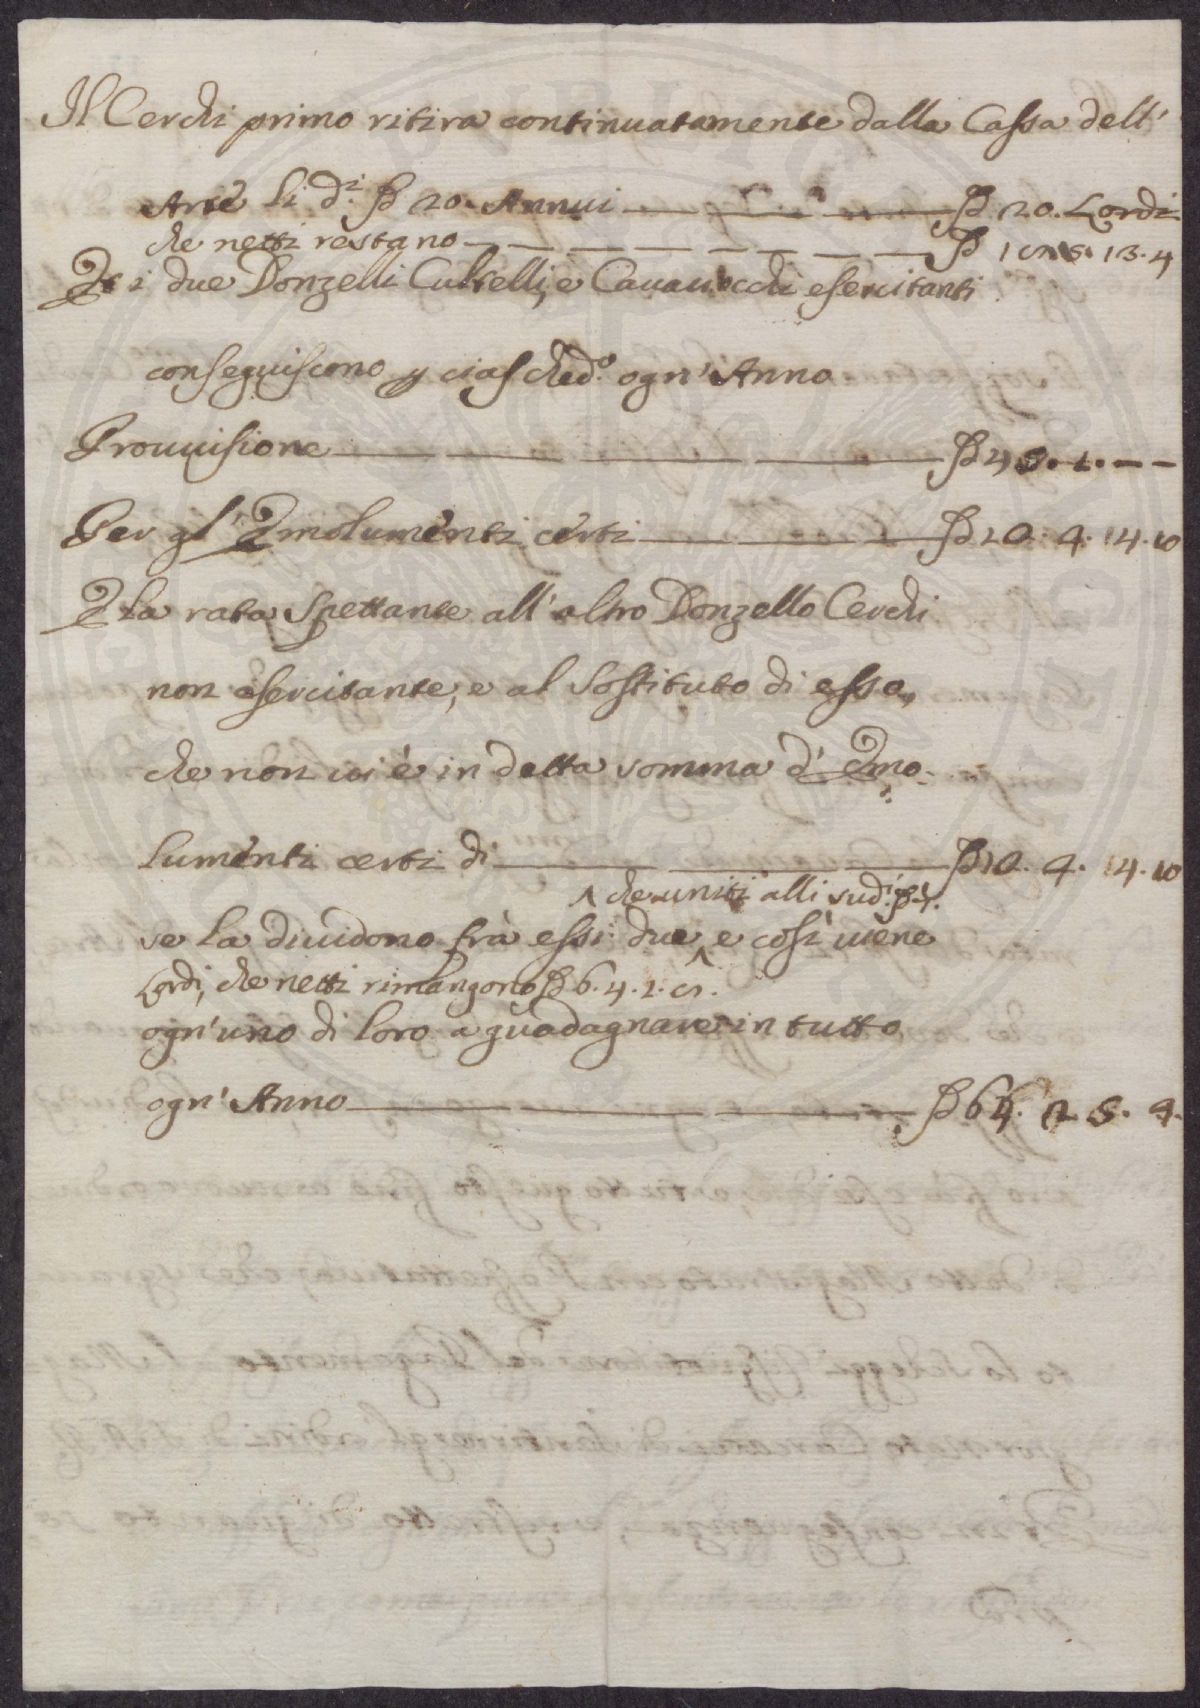 Il Cerchi primo ritira continuatamente dalla Cassa dell'
Arte li d.i 20. Annui 20. Lordi
che netti restano 13.4
E i due Donzelli Cultelli, e Cavavecchi esercitanti
conseguiscono p ciasched.o ogn'Anno
Provvisione
Per gl'Emolumenti certi 4.14.10
E la rata spettante all'altro Donzello Cerchi
non esercitante, e al sostituto di esso,
che non vi è in detta somma d'Emo-
lumenti certi di 4.14.10
che uniti alli sud.i
se la dividono frà essi due, e così viene
Lordi, che netti rimangono 6.4.2.
ogn'uno di loro a guadagnare in tutto
ogn'Anno